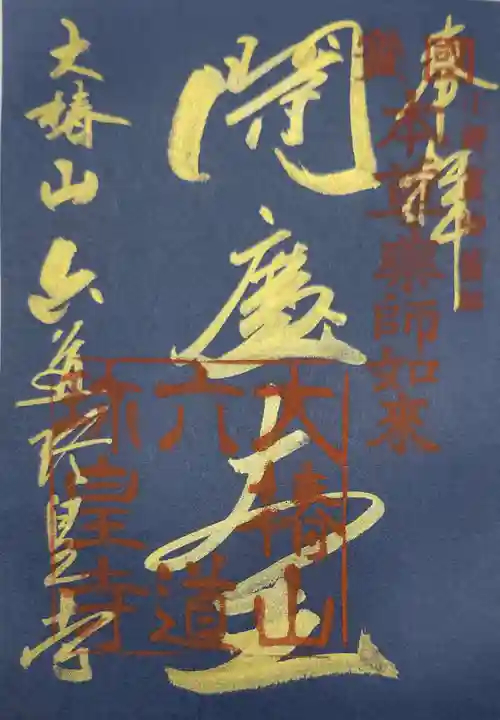 奉拝
本尊藥師如来
閻魔大王
大椿山 六道珍皇寺
大椿山
六道
珍皇寺